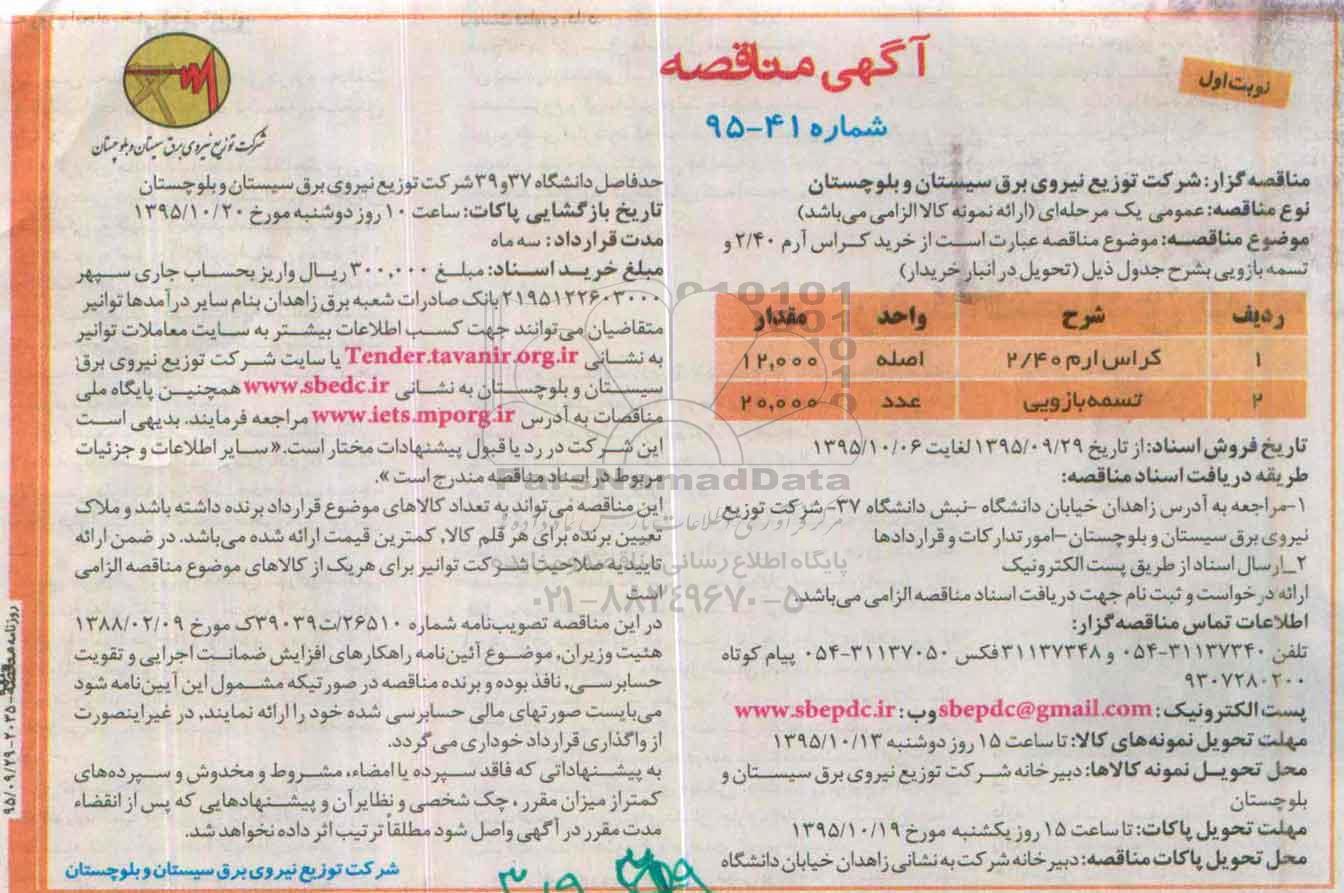 آگهی مناقصه
نوبت اول
شماره ۴۱-۹۵
شرکت توزیع نیروی برق سیستان و بلوچستان
مناقصه گزار: شرکت توزیع نیروی برق سیستان و بلوچستان
نوع مناقصه: عمومی یک مرحله‌ای (ارائه نمونه کالا الزامی می‌باشد)
موضوع مناقصه: موضوع مناقصه عبارت است از خرید کراس آرم ۲/۴۰ و
تسمه بازویی بشرح جدول ذیل (تحویل در انبار خریدار)
ردیف شرح واحد مقدار
۱ کراس ارم ۲/۴۰ اصله ۱۲,۰۰۰
۲ تسمه بازویی عدد ۲۰,۰۰۰
تاریخ فروش اسناد: از تاریخ ۱۳۹۵/۰۹/۲۹ لغایت ۱۳۹۵/۱۰/۰۶
طریقه دریافت اسناد مناقصه:
۱-مراجعه به آدرس زاهدان خیابان دانشگاه -نبش دانشگاه ۳۷- شرکت توزیع
نیروی برق سیستان و بلوچستان-امور تدارکات و قراردادها
۲_ارسال اسناد از طریق پست الکترونیک
ارائه درخواست و ثبت نام جهت دریافت اسناد مناقصه الزامی می‌باشد
اطلاعات تماس مناقصه گزار:
تلفن ۳۱۱۳۷۳۴۰-۰۵۴ و ۳۱۱۳۷۳۴۸ فکس ۳۱۱۳۷۰۵۰-۰۵۴ پیام کوتاه
۹۳۰۷۲۸۰۲۰۰
پست الکترونیک: sbepdc@gmail.com وب: www.sbepdc.ir
مهلت تحویل نمونه‌های کالا: تا ساعت ۱۵ روز دوشنبه ۱۳۹۵/۱۰/۱۳
محل تحویل نمونه کالاها: دبیرخانه شرکت توزیع نیروی برق سیستان و
بلوچستان
مهلت تحویل پاکات: تا ساعت ۱۵ روز یکشنبه مورخ ۱۳۹۵/۱۰/۱۹
محل تحویل پاکات مناقصه: دبیرخانه شرکت به نشانی زاهدان خیابان دانشگاه
حدفاصل دانشگاه ۳۷ و ۳۹ شرکت توزیع نیروی برق سیستان و بلوچستان
تاریخ بازگشایی پاکات: ساعت ۱۰ روز دوشنبه مورخ ۱۳۹۵/۱۰/۲۰
مدت قرارداد: سه ماه
مبلغ خرید اسناد: مبلغ ۳۰۰,۰۰۰ ریال واریز بحساب جاری سپهر
۲۱۹۵۱۲۲۶۰۳۰۰۰ بانک صادرات شعبه برق زاهدان بنام سایر درآمدها توانیر
متقاضیان می‌توانند جهت کسب اطلاعات بیشتر به سایت معاملات توانیر
به نشانی Tender.tavanir.org.ir یا سایت شرکت توزیع نیروی برق
سیستان و بلوچستان به نشانی www.sbedc.ir همچنین پایگاه ملی
مناقصات به آدرس www.iets.mporg.ir مراجعه فرمایند. بدیهی است
این شرکت در رد یا قبول پیشنهادات مختار است.«سایر اطلاعات و جزئیات
مربوط در اسناد مناقصه مندرج است».
این مناقصه می‌تواند به تعداد کالاهای موضوع قرارداد برنده داشته باشد و ملاک
تعیین برنده برای هر قلم کالا، کمترین قیمت ارائه شده می‌باشد. در ضمن ارائه
تاییدیه صلاحیت شرکت توانیر برای هریک از کالاهای موضوع مناقصه الزامی
است
در این مناقصه تصویب‌نامه شماره ۲۶۵۱۰/ت۳۹۰۳۹ک مورخ ۱۳۸۸/۰۲/۰۹
هئیت وزیران، موضوع آئین‌نامه راهکارهای افزایش ضمانت اجرایی و تقویت
حسابرسی، نافذ بوده و برنده مناقصه در صورتیکه مشمول این آیین‌نامه شود
می‌بایست صورتهای مالی حسابرسی شده خود را ارائه نمایند، در غیر اینصورت
از واگذاری قرارداد خوداری می گردد.
به پیشنهاداتی که فاقد سپرده یا امضاء، مشروط و مخدوش و سپرده‌های
کمتر از میزان مقرر، چک شخصی و نظایر آن و پیشنهادهایی که پس از انقضاء
مدت مقرر در آگهی واصل شود مطلقاً ترتیب اثر داده نخواهد شد.
شرکت توزیع نیروی برق سیستان و بلوچستان
ParsNamadData
پایگاه اطلاع رسانی مناقصه و مزایده
۰۲۱-۸۸۳۴۹۶۷۰-۵
روزنامه مناقصه-۲۰۳۵-۹۵/۰۹/۲۹